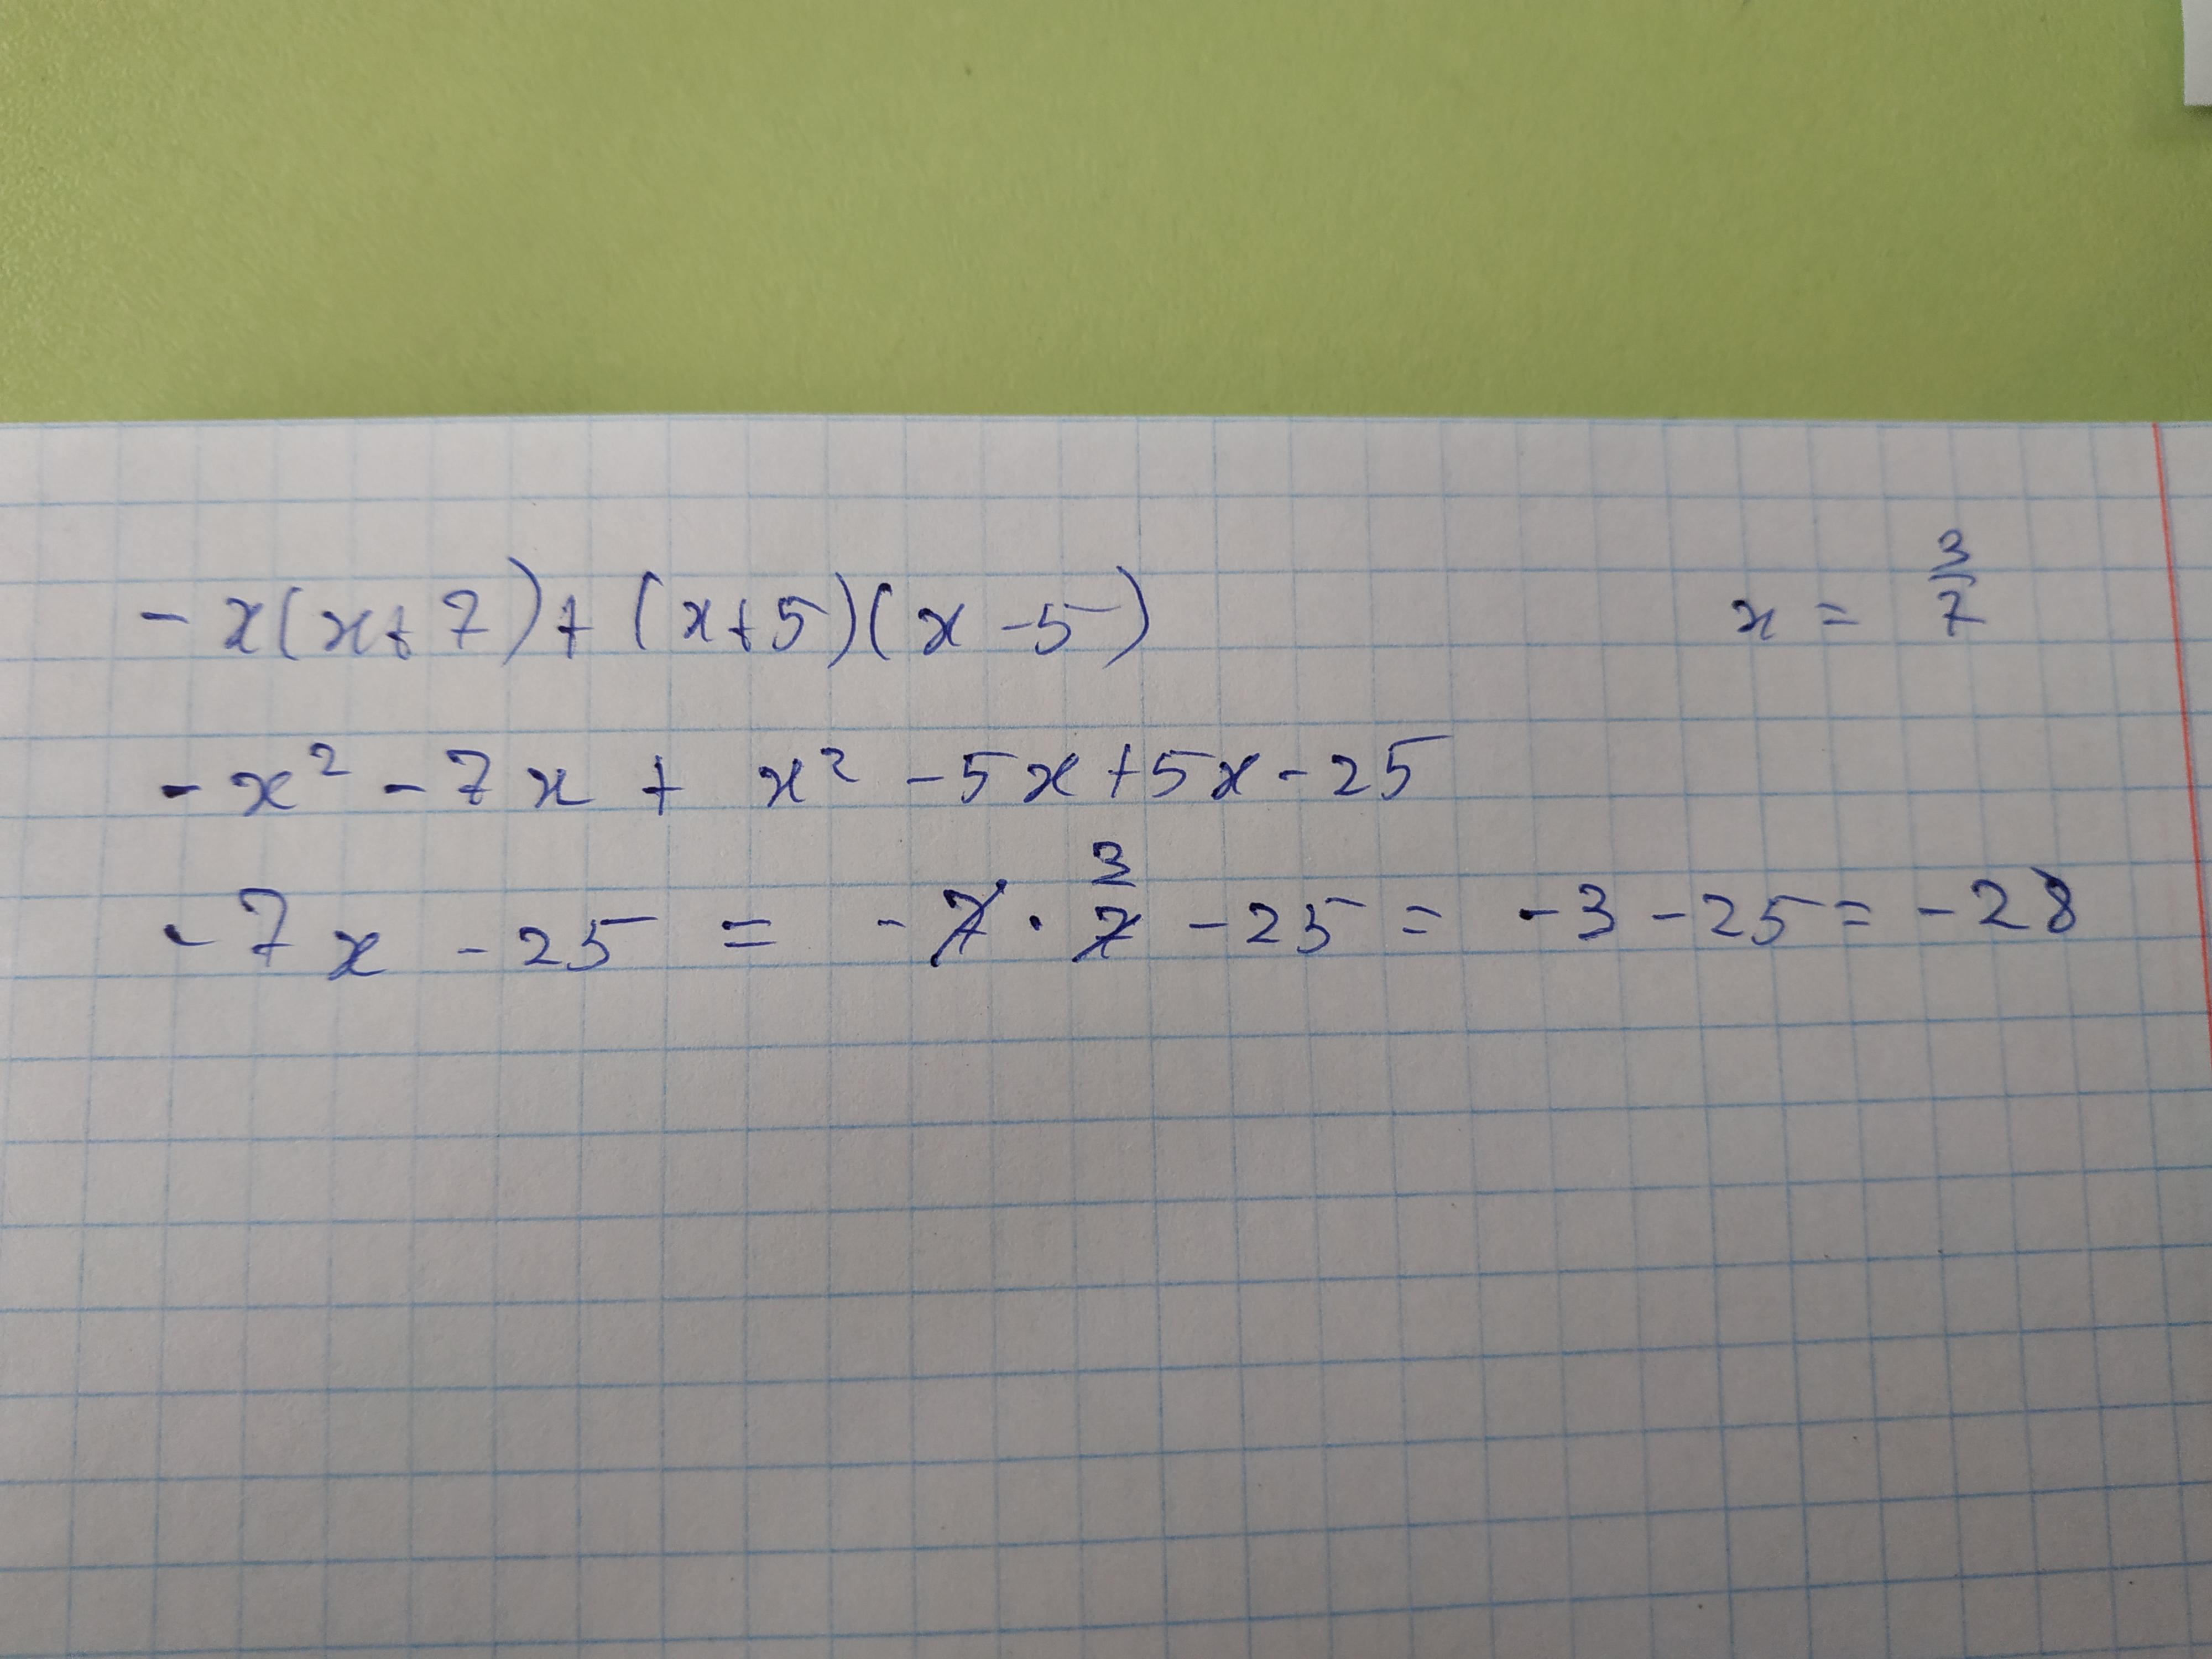 -x(x+7)+(x+5)(x-5) x = 3/7
-x² - 7x + x² - 5x + 5x - 25
-7x - 25 = -7 · 3/7 - 25 = -3 - 25 = -28